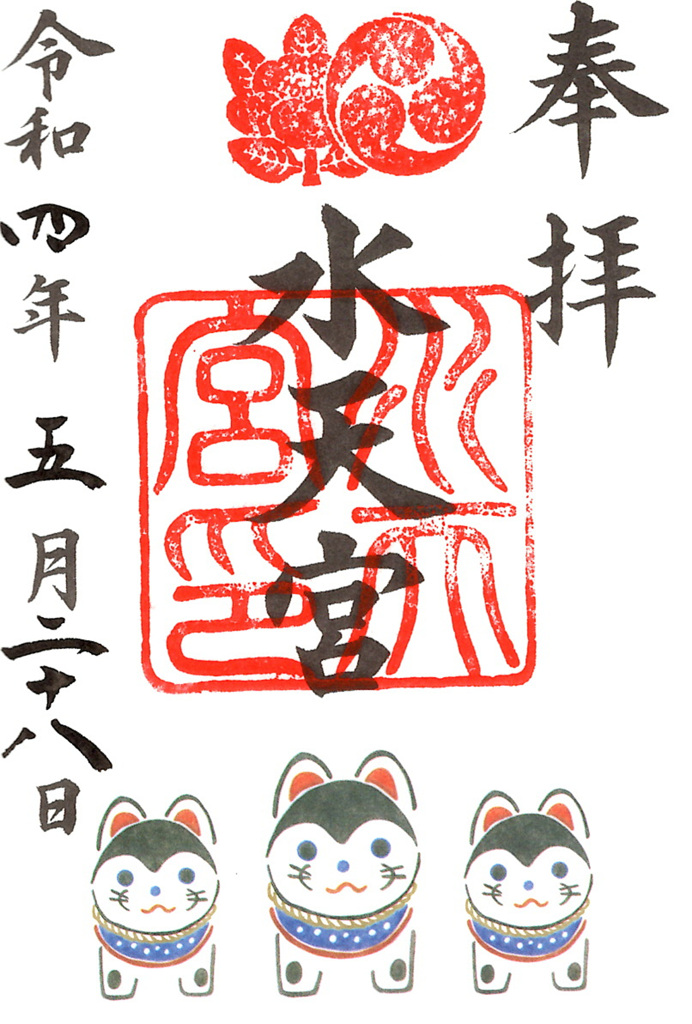 奉拝
水天宮
水天宮印
令和四年五月二十八日